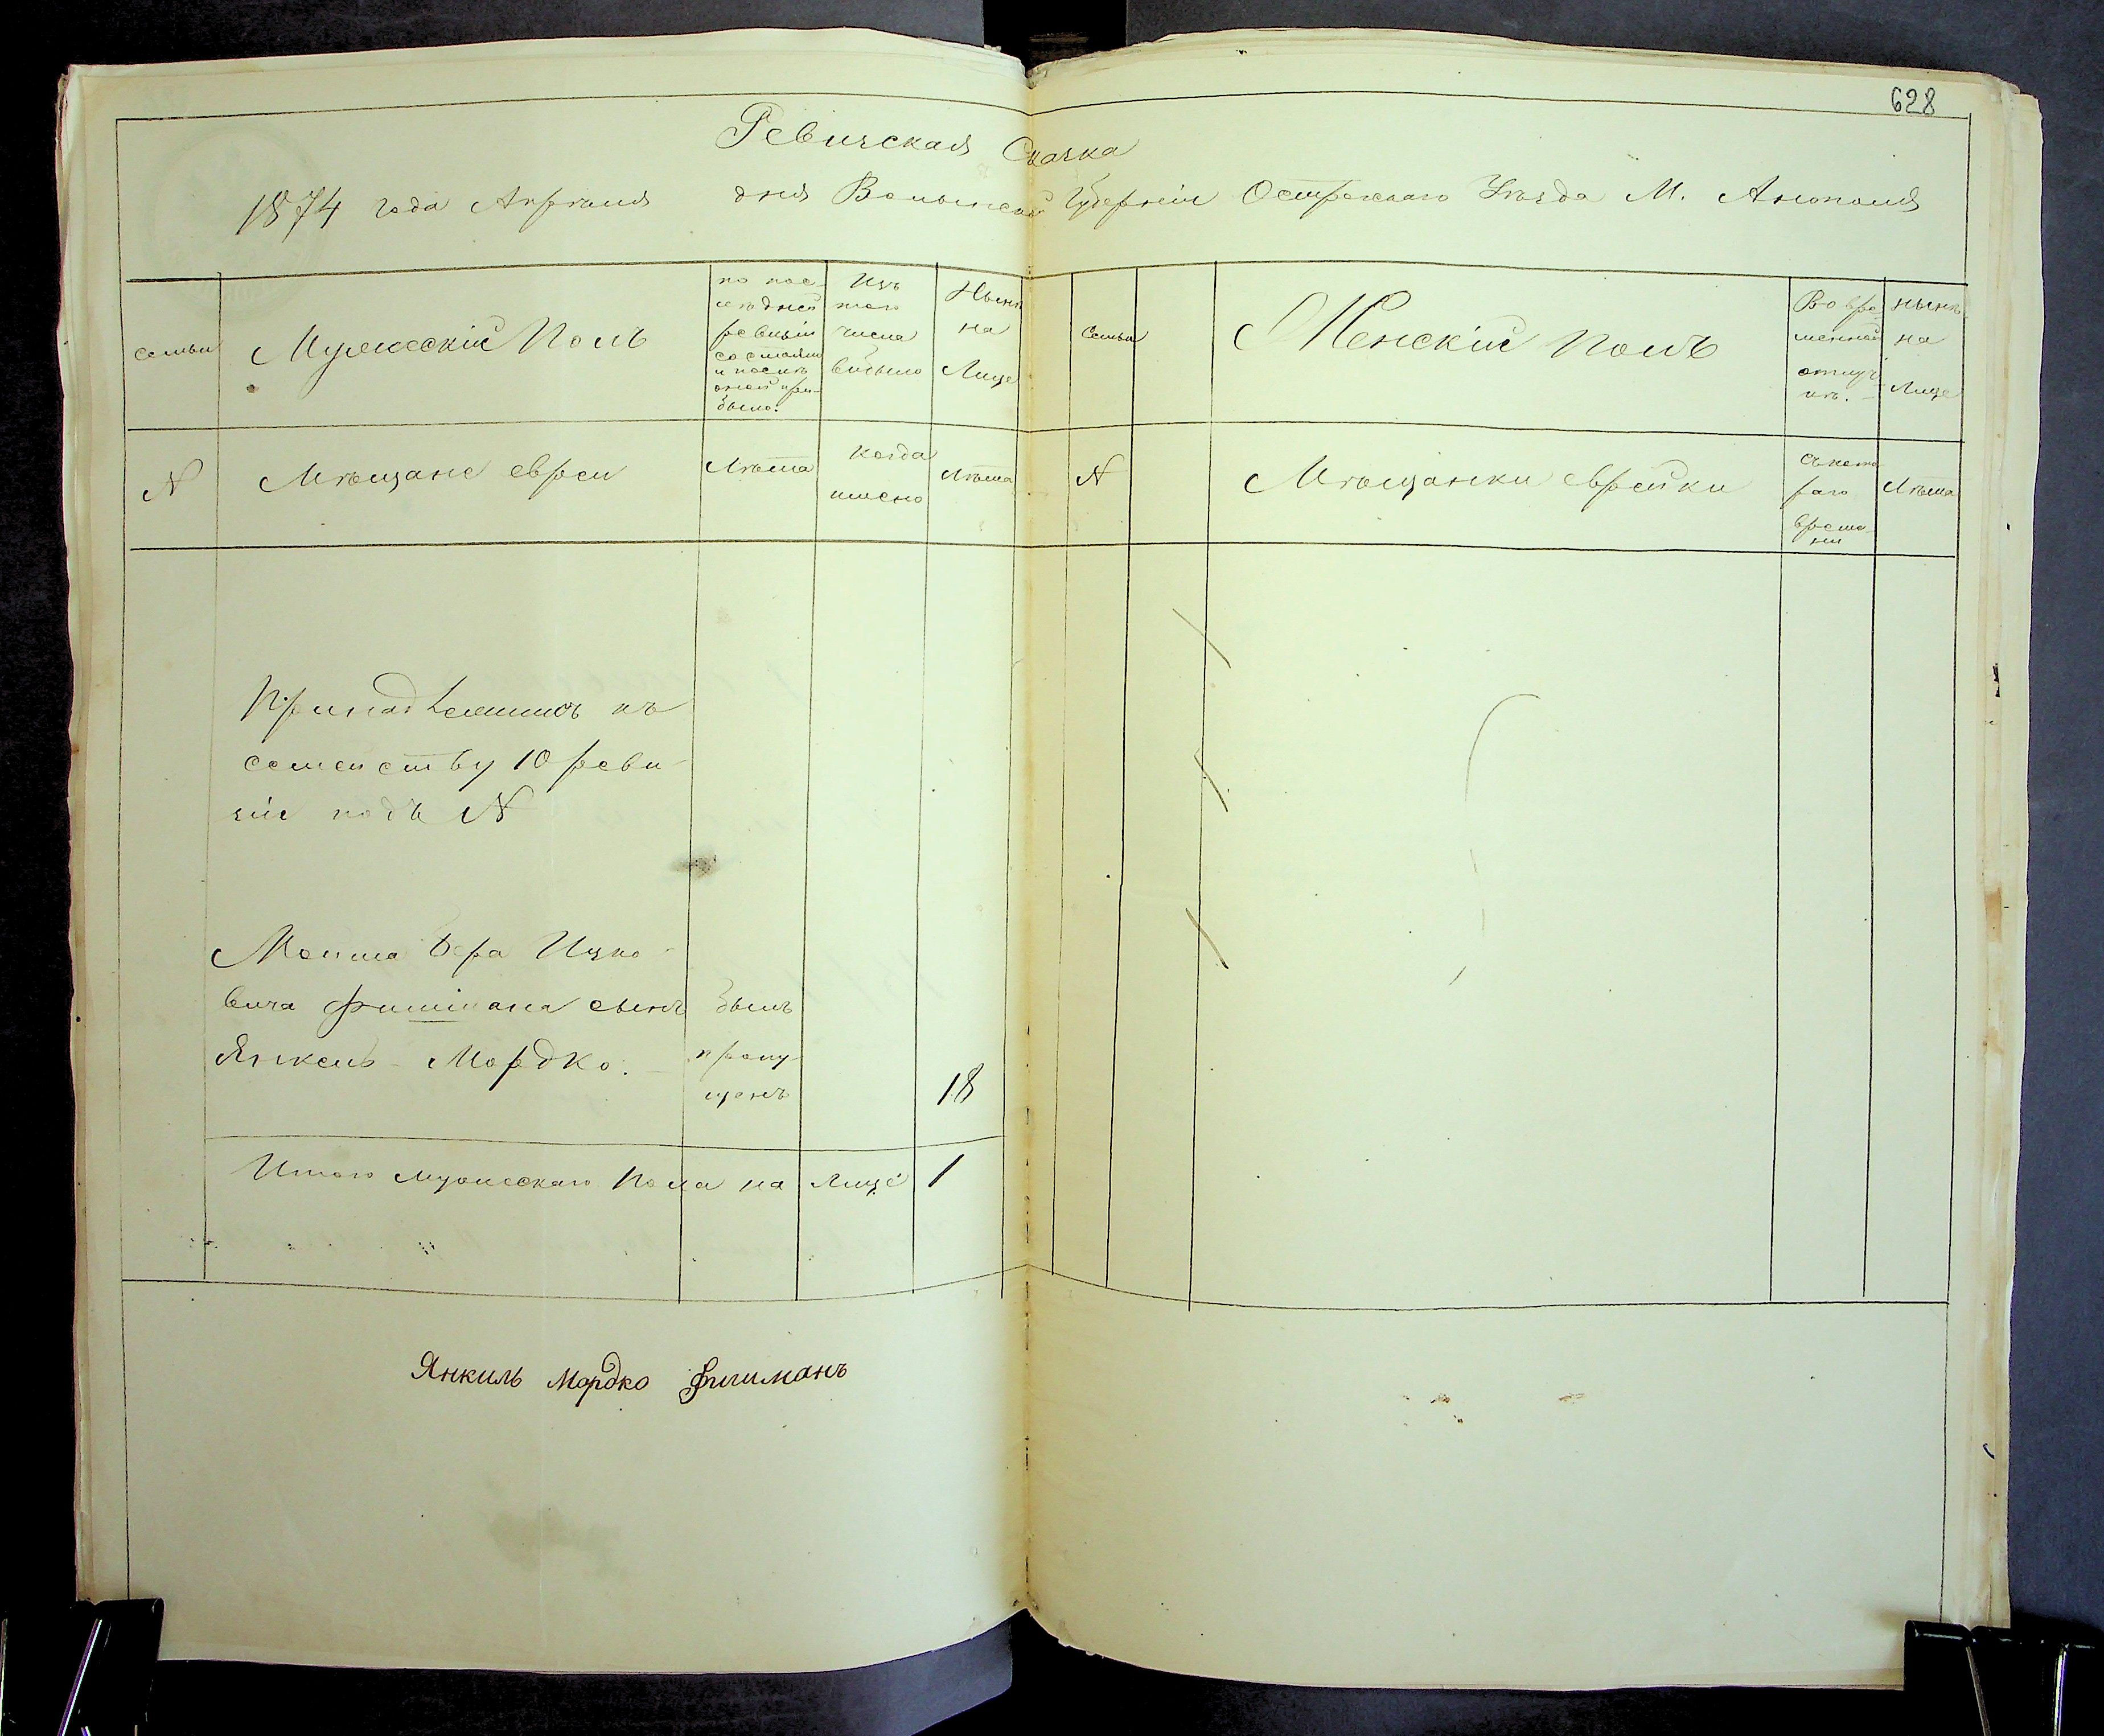 628
Ревизская Сказка
1874 года Апреля дня Волынской Губерніи Острожскаго Уѣзда М. Аннополя
семьи
Мужескій Полъ
по пос-
лѣдней
ревизіи
состояли
и послѣ
оной при-
было.
Изъ
того
числа
выбыло
Нынѣ
на
Лице
Семьи
Женскій Полъ
Во вре-
менной
отлуч-
кѣ.
нынѣ
на
Лице
N
Мѣщане евреи
Лѣта
когда
имено
Лѣта
N
Мѣщанки еврейки
Съ кото
раго
време-
ни
Лѣта
Принадлежитъ къ
семейству 10 реви-
зіи подъ N
Мошка Бера Ицко-
вича Фишмана сынъ
Янкель-Мордко.
былъ
пропу-
щенъ
18
Итого мужескаго Пола на Лице 1
Янкиль Мордко Фишманъ